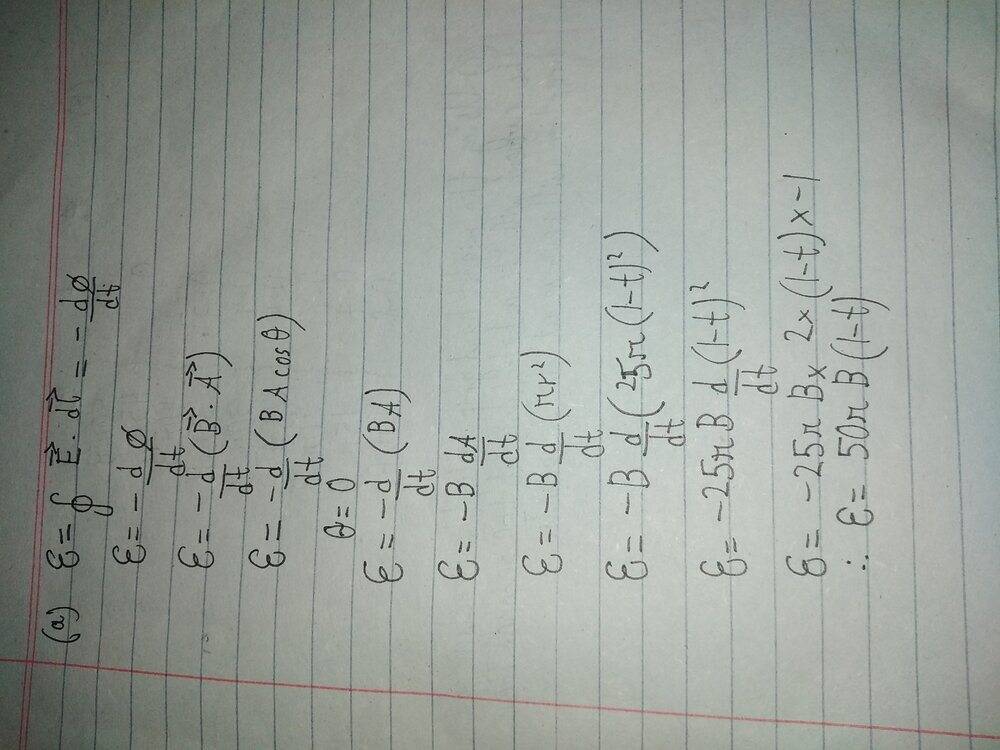 (a) ε = ∮ E⃗ · dl⃗ = - dϕ/dt
ε = - dϕ/dt
ε = - d/dt (B⃗ · A⃗)
ε = - d/dt (BA cosθ)
θ = 0
ε = - d/dt (BA)
ε = -B dA/dt
ε = -B d/dt (πr²)
ε = -B d/dt (25π(1-t)²)
ε = -25πB d/dt (1-t)²
ε = -25πB x 2x(1-t) x -1
∴ ε = 50πB(1-t)